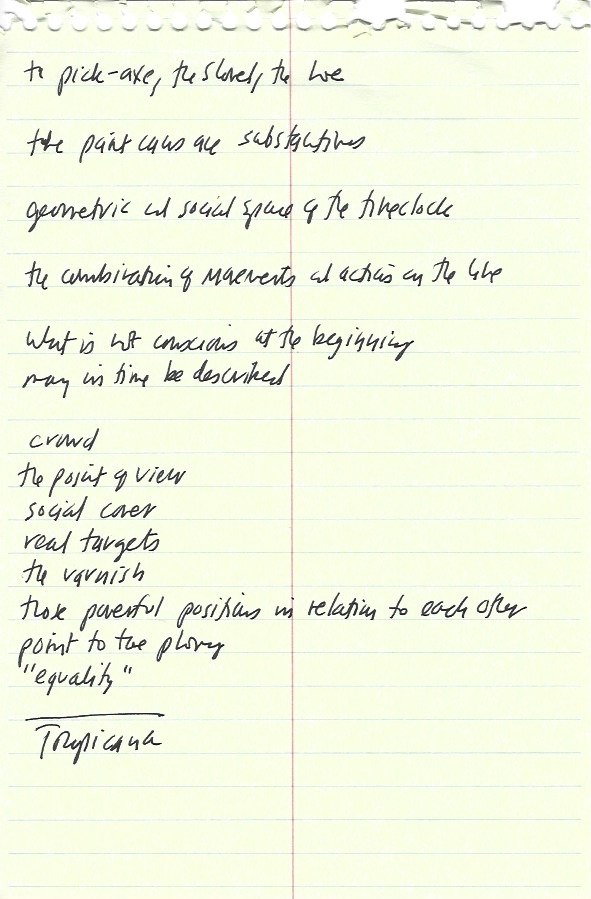 the pick-axe, the shovel, the hoe
the paint cans are substantives
geometric and social space of the timeclock
the combination of movements and actions on the line
What is not conscious at the beginning
may in time be described
crowd
the point of view
social cover
real targets
the varnish
those powerful positions in relation to each other
point to the
"equality"
Tropicana